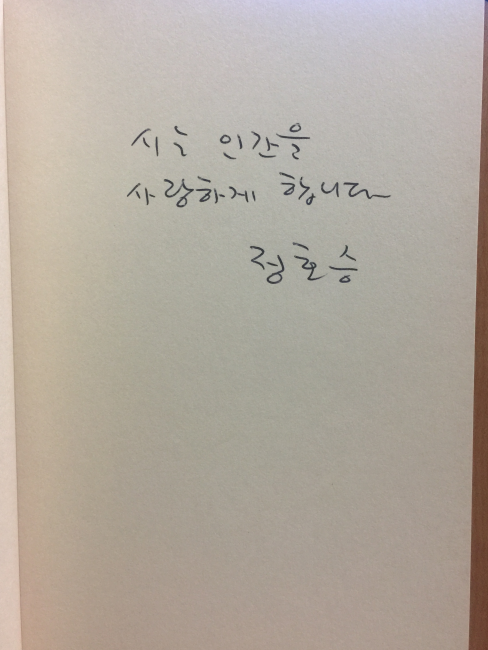 시는 인간을
사랑하게 합니다
정호승